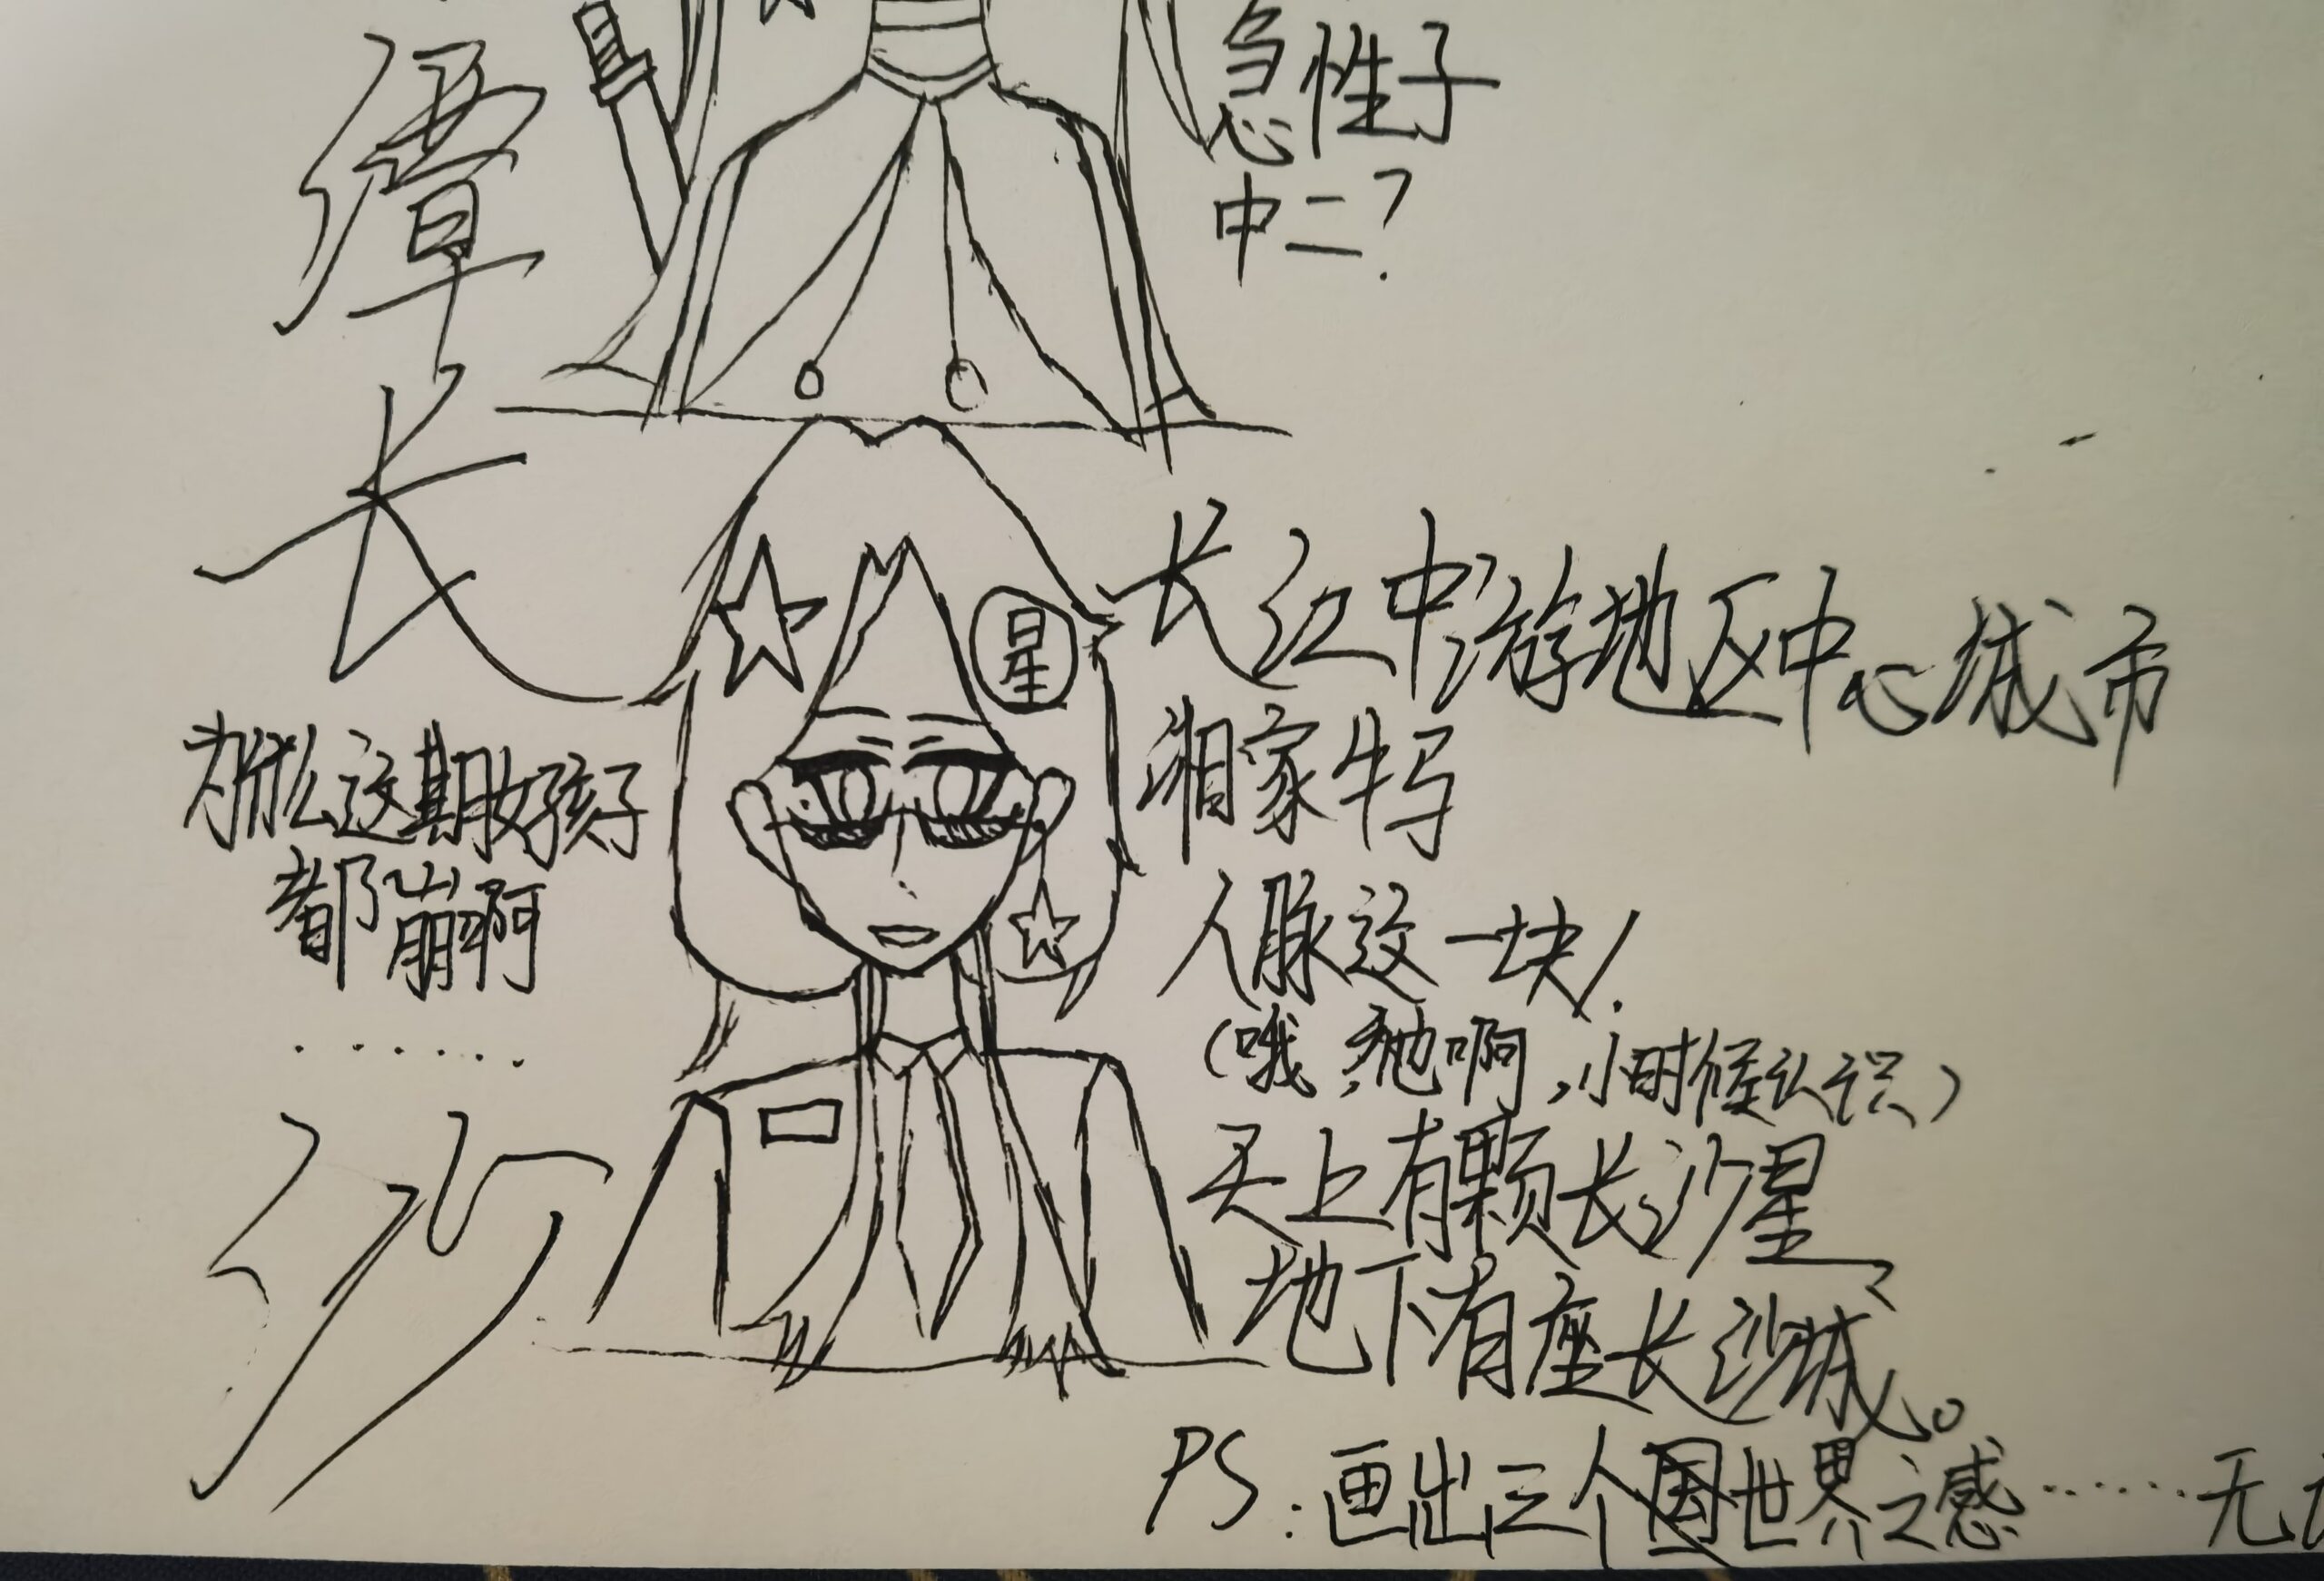 潭
急性子
中二？
长沙
星
长江中游地区中心城市
湘家牛马
人脉这一块！
（哦，她啊，小时候认识）
头上有颗长沙星，
地下有座长沙城。
为什么这期女孩子
都崩啊
……
PS：画出三个世界之感……无